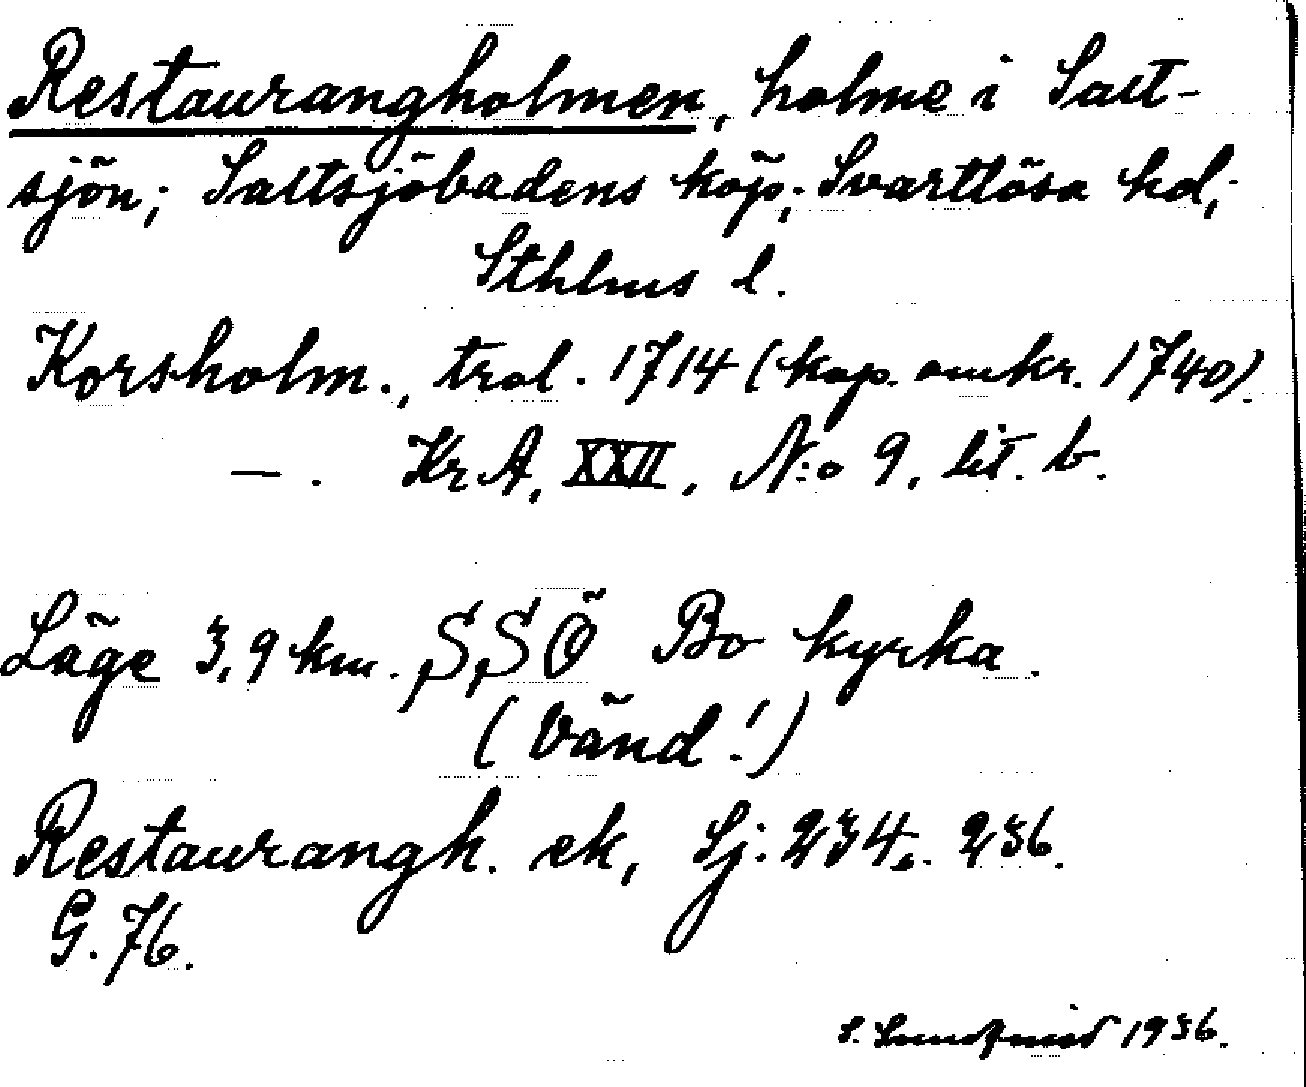 Restaurangholmen, holme i Salt-
sjön; Saltsjöbadens köp; Svartlösa hd;
Sthlms l.
Korsholm., trol. 1714 (kop. omkr. 1740).
— . KrA, XXII, N:o 9, lit. b.
Läge 3,9 km. SSÖ Bo kyrka.
(Vänd!)
Restaurangh. ek, Sj: 234. 236.
G. 76.
S. 1936.